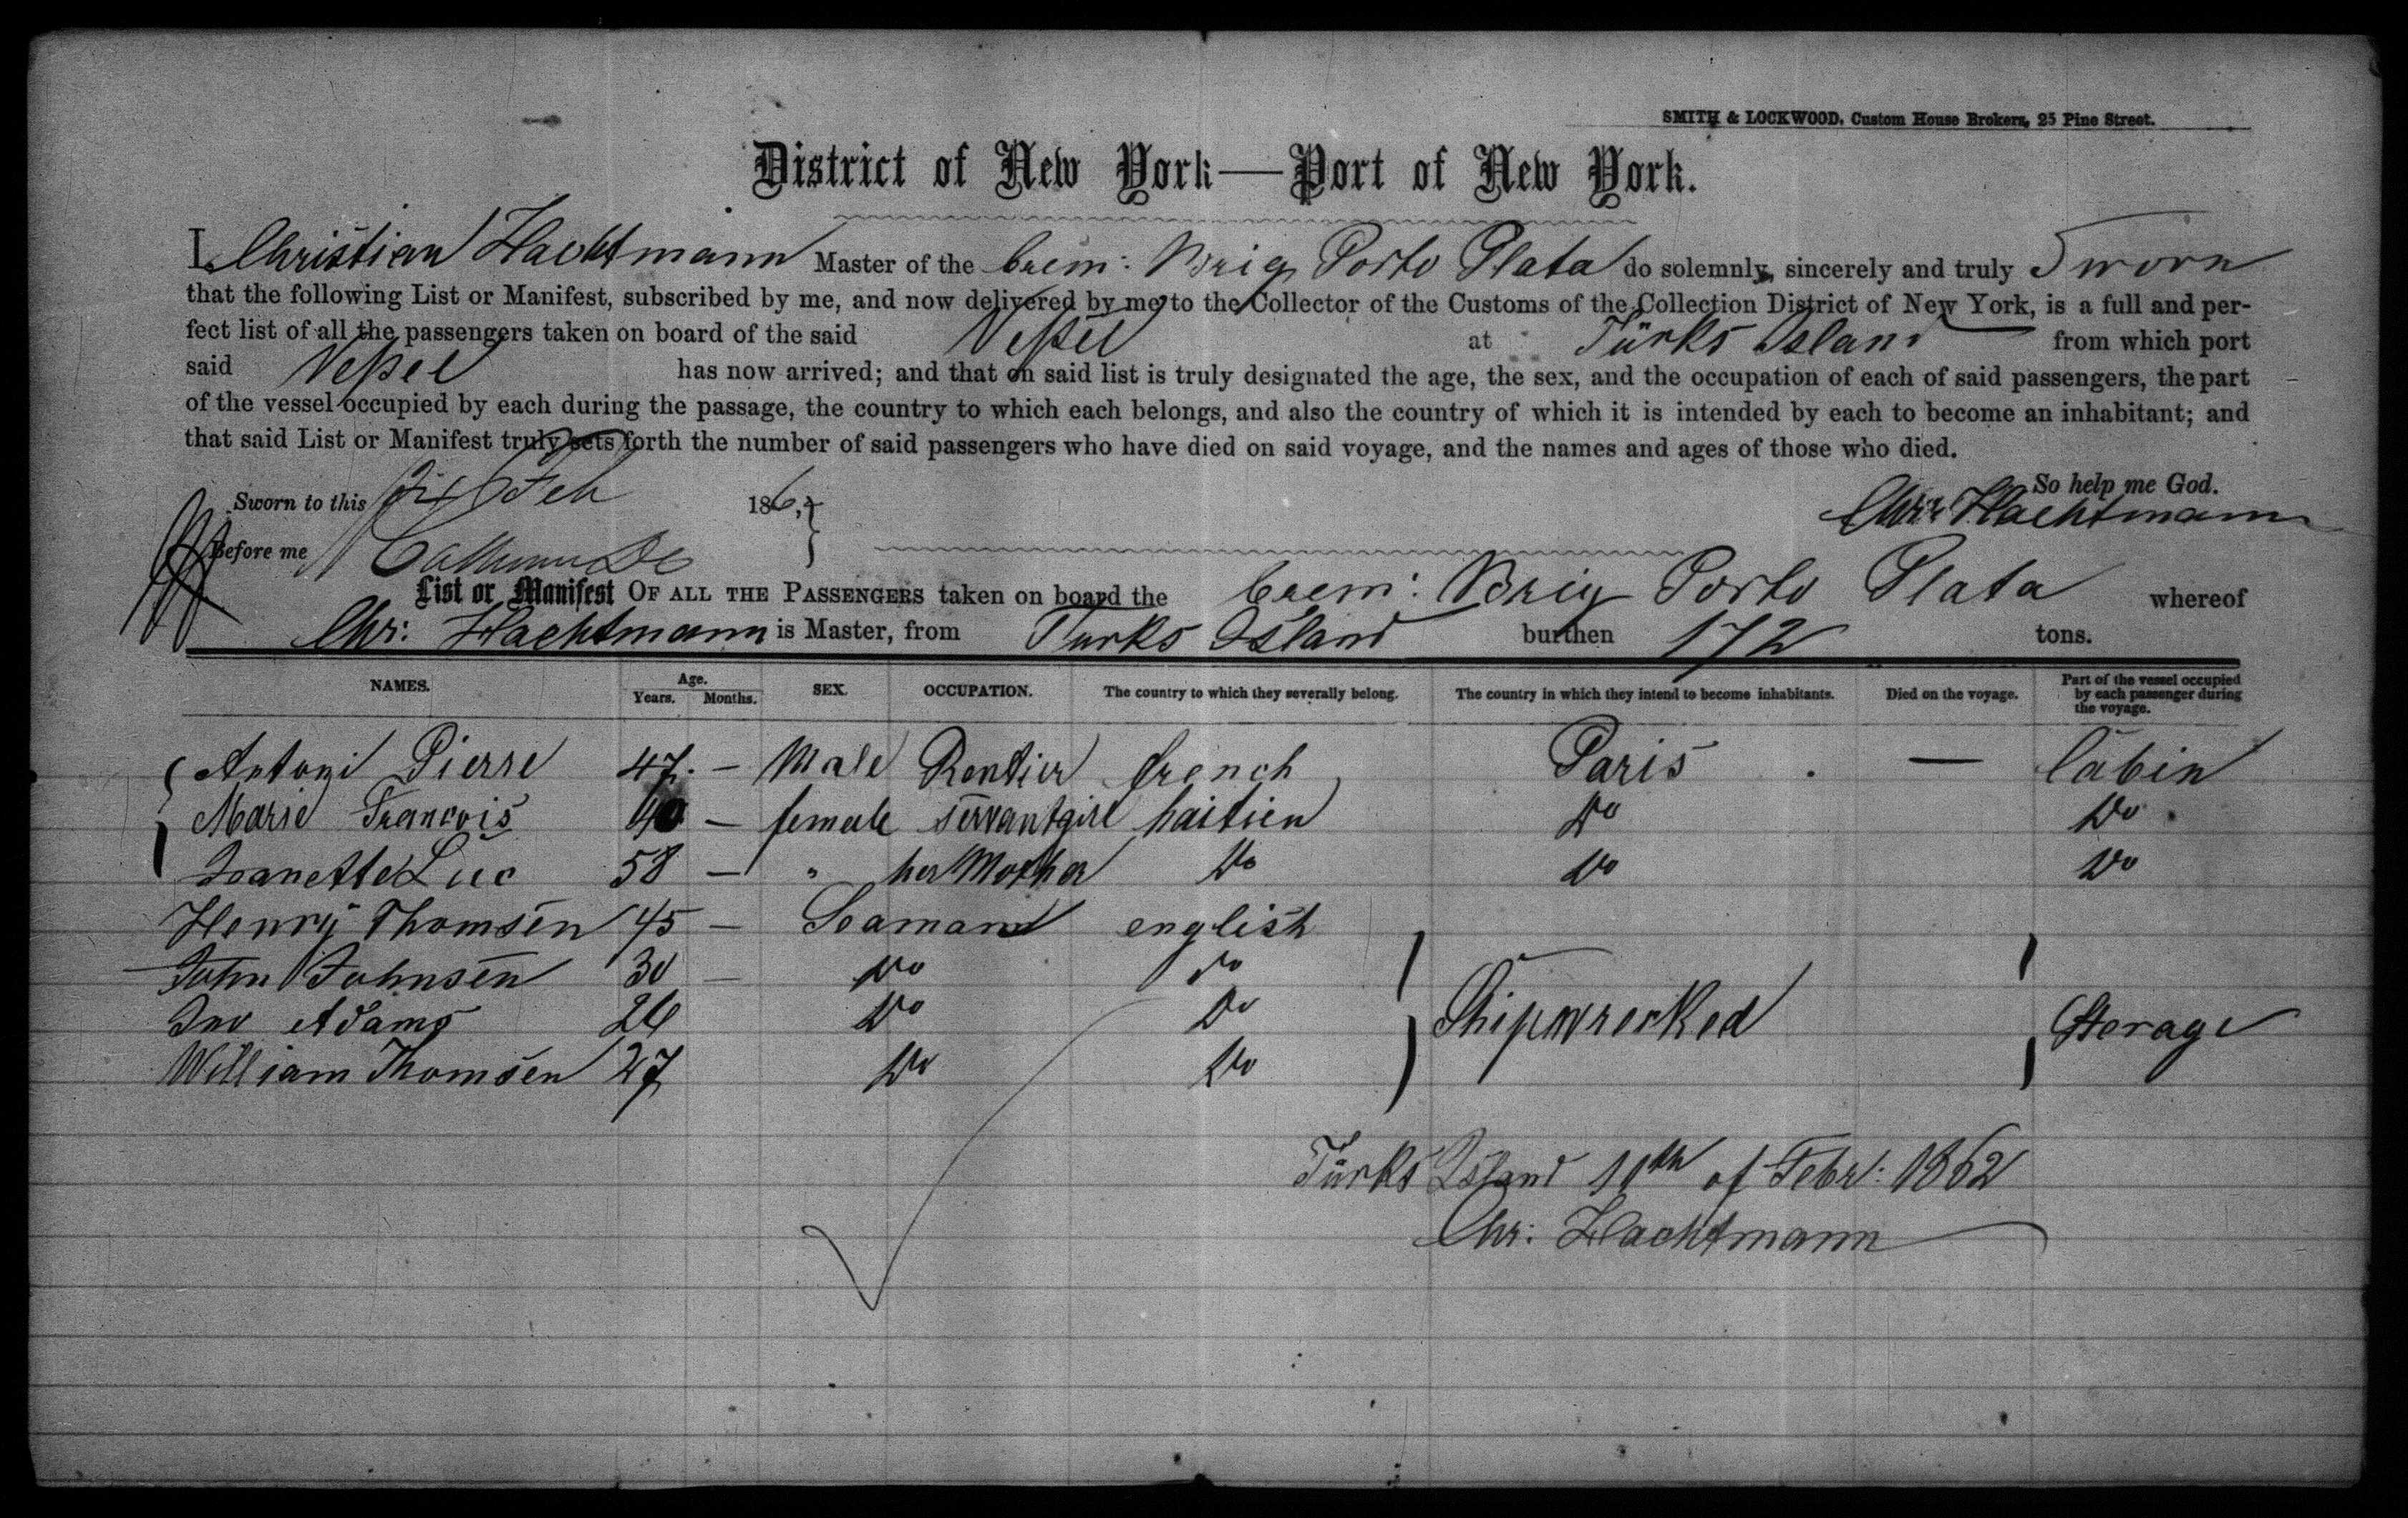 SMITH & LOCKWOOD, Custom House Brokers, 25 Pine Street.
District of New York—Port of New York.
I, Christian Hachtmann Master of the brem: Brig Porto Plata do solemnly, sincerely and truly Sworn
that the following List or Manifest, subscribed by me, and now delivered by me to the Collector of the Customs of the Collection District of New York, is a full and per-
fect list of all the passengers taken on board of the said Veßel at Türks Island from which port
said Veßel has now arrived; and that on said list is truly designated the age, the sex, and the occupation of each of said passengers, the part
of the vessel occupied by each during the passage, the country to which each belongs, and also the country of which it is intended by each to become an inhabitant; and
that said List or Manifest truly sets forth the number of said passengers who have died on said voyage, and the names and ages of those who died.
So help me God.
Sworn to this Feb 186,
Chr: Hachtmann
Before me
List or Manifest OF ALL THE PASSENGERS taken on board the brem: Brig Porto Plata whereof
Chr: Hachtmann is Master, from Turks Island burthen 172 tons.
NAMES. Age. Years. Months. SEX. OCCUPATION. The country to which they severally belong. The country in which they intend to become inhabitants. Died on the voyage. Part of the vessel occupied by each passenger during the voyage.
Antoni Pierre 47. — Male Rentier french Paris . — Cabin
Marie Francois 40 — female servantgirl haitien Do Do
Jeanette Luc 58 — " her Mother Do Do Do
Henry Thomsen 45 — Seaman english
John Johnsen 30 — Do Do
Jno Adams 26 Do Do Shipwrecked Sterage
William Thomsen 27 Do Do
Türks Island 11th of Febr: 1862
Chr: Hachtmann